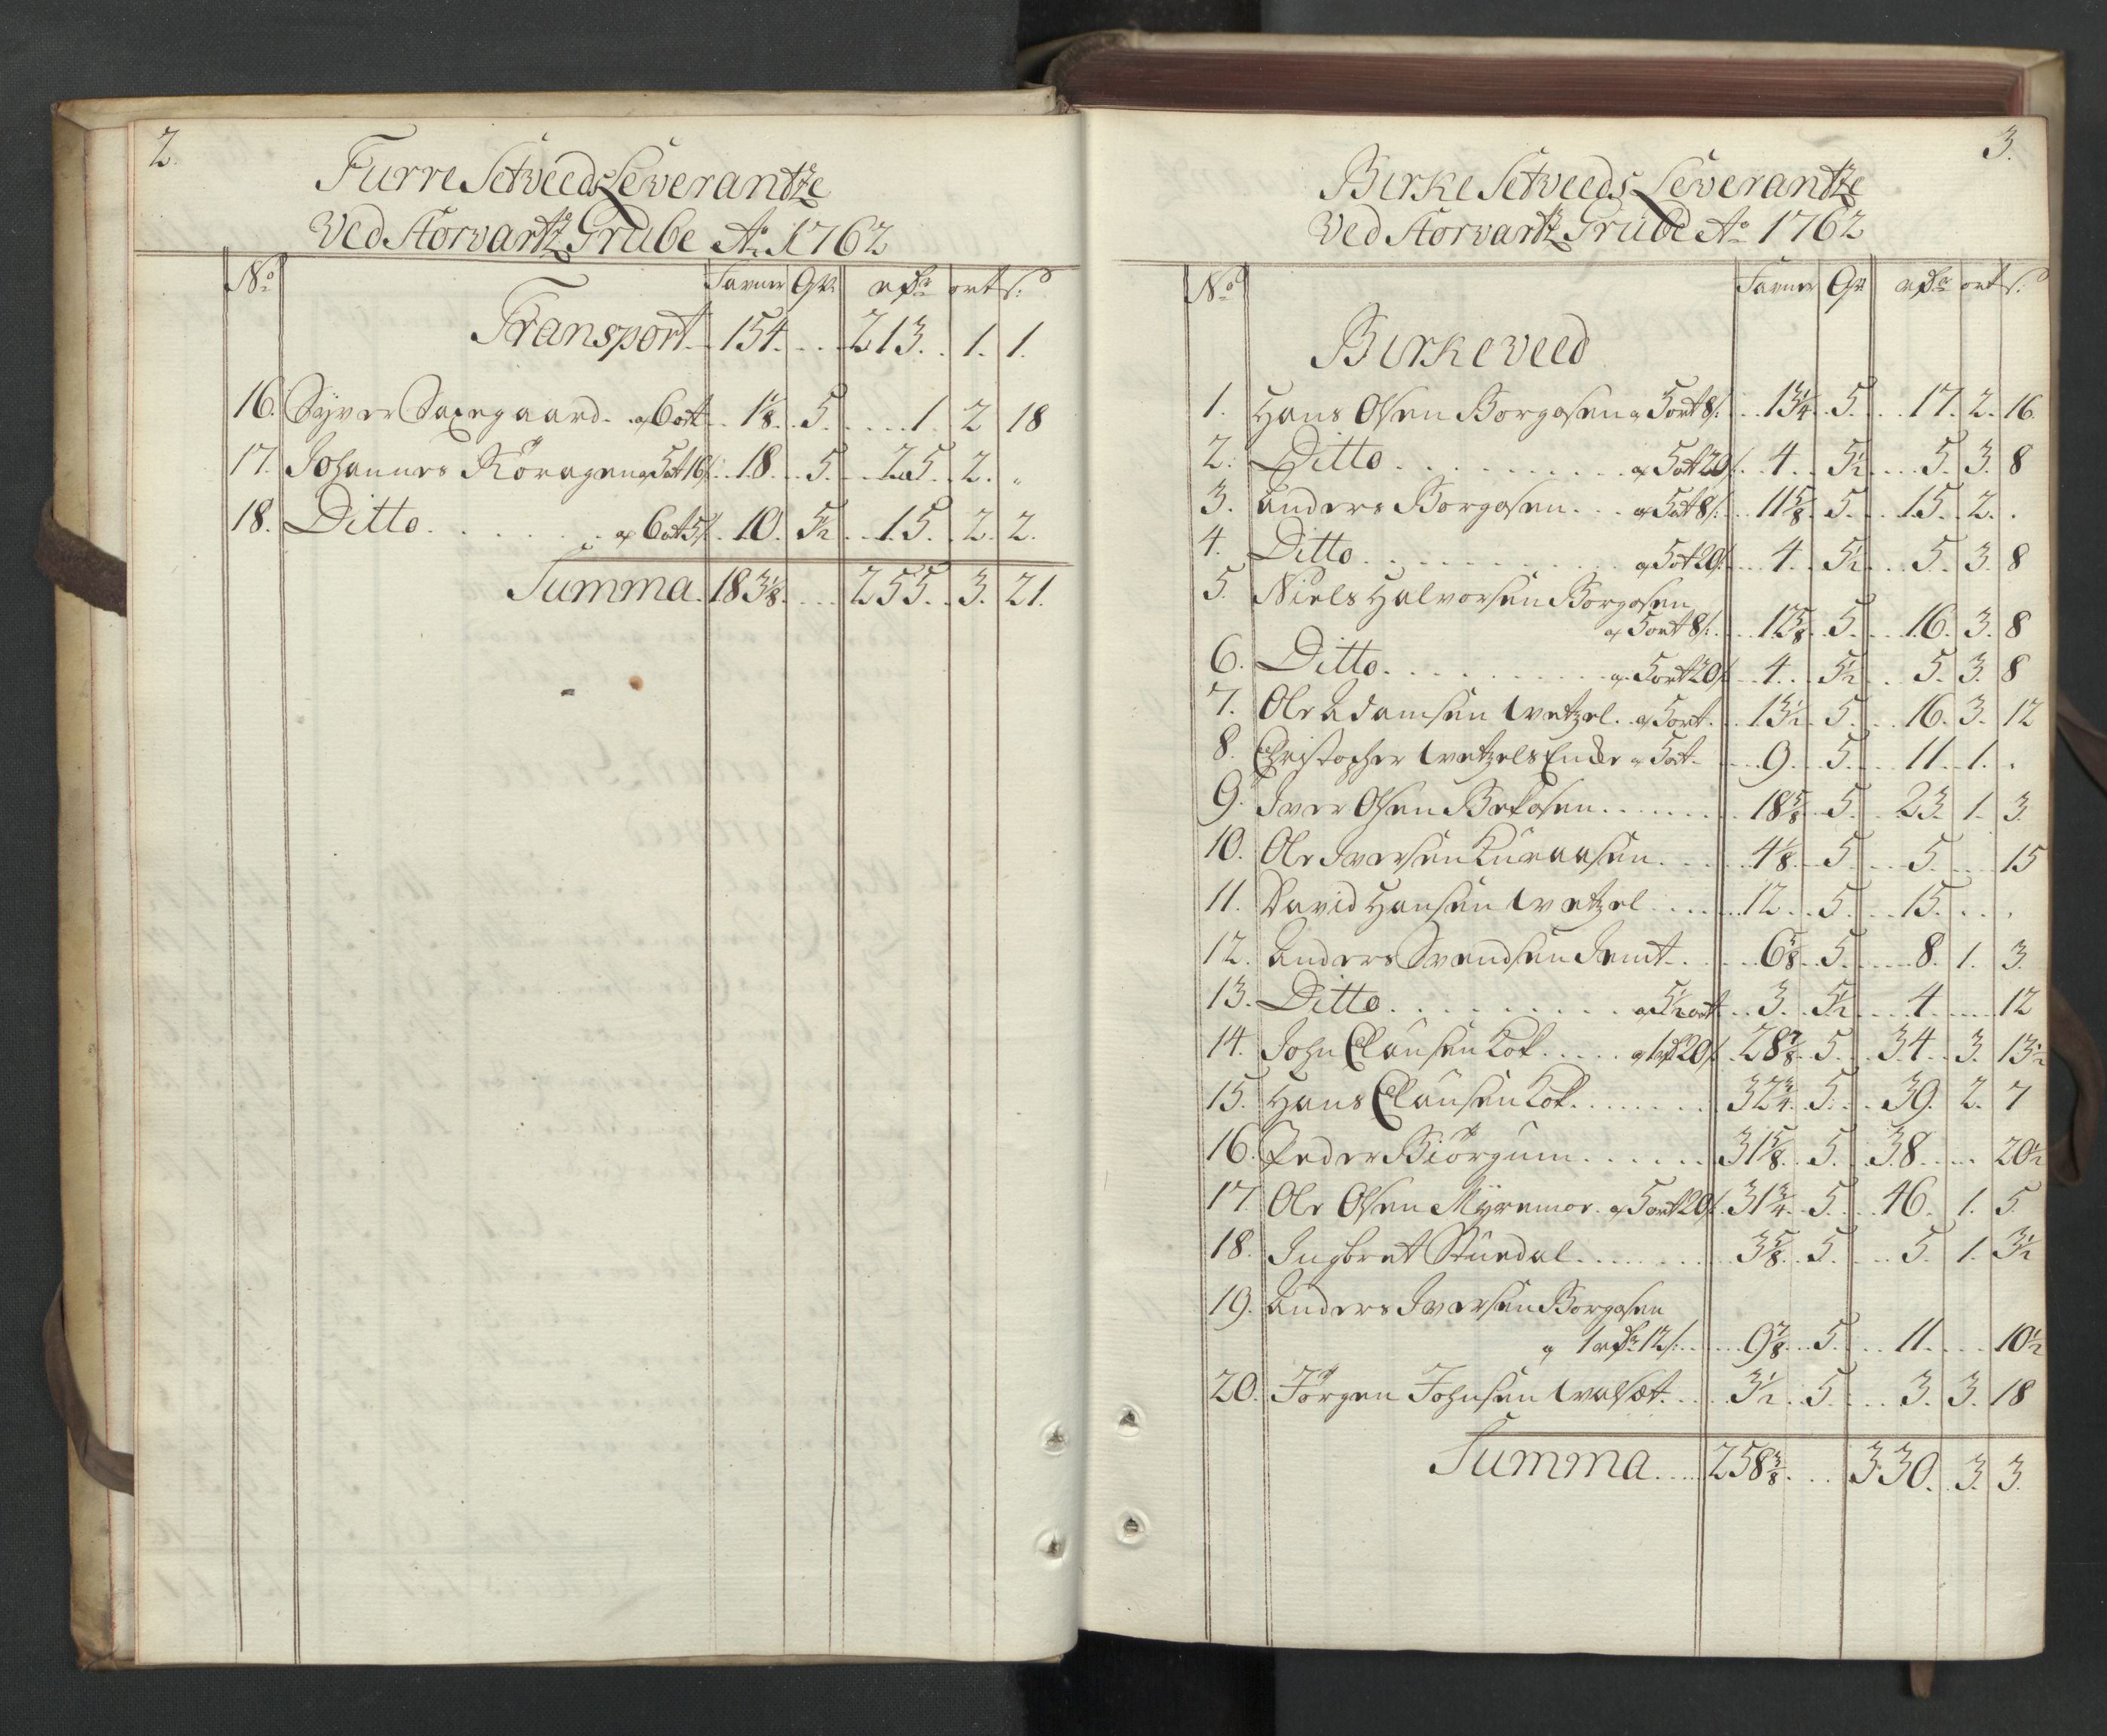 2.
Furre Setveeds Leverantze
Ved Storvartz Grube Ao. 1762
No. Favner Qv. rdr. ort s.
Transport 154. 213. 1. 1.
16. Syver Saxegaard. a 6 ort 1 1/8. 5. 1. 2 18
17. Johannes Röragen a 5 ort 16 s. 18. 5. 25. 2. "
18. Ditto a 6 ort 5 s. 10. 5 1/2 15. 2. 2.
Summa. 183 1/8. 255. 3. 21.
3.
Birke Setveeds Leverantze
Ved Storvartz Grube Ao. 1762
No. Favner Qv. rdr. ort s.
Birkeveed
1. Hans Olsen Borgosen a 5 ort 8 s. 13 1/4 5. 17. 2. 16.
2. Ditto a 5 ort 20 s. 4. 5 1/2 5. 3. 8
3. Anders Borgosen a 5 ort 8 s. 11 5/8. 5. 15. 2. .
4. Ditto a 5 ort 20 s. 4. 5 1/2 5. 3. 8
5. Niels Halvorsen Borgosen
a 5 ort 8 s. 12 5/8. 5. 16. 3. 8
6. Ditto a 5 ort 20 s. 4. 5 1/2 5. 3. 8
7. Ole Adamsen Wetzel a 5 ort 13 1/2. 5. 16. 3. 12
8. Christopher Wetzels Enke a 5 ort 9. 5. 11. 1. .
9. Iver Olsen Bekosen 18 5/8 5 23. 1. 3.
10. Ole Iversen Kuraasen 4 1/8. 5 5. 15
11. David Hansen Wetzel 12. 5. 15. . .
12. Anders Svendsen Jemt 6 5/8. 5. 8. 1. 3.
13. Ditto a 5 1/2 ort 3. 5 1/2 4. 12
14. John Clausen Kok a 1 rd 20 s. 28 7/8. 5. 34. 3. 13 1/2
15. Hans Clausen Kok 32 3/4. 5. 39. 2. 7
16. Peder Biörgum 31 5/8. 5. 38. 20 1/2
17. Ole Olsen Myremoe a 5 ort 20 s. 31 3/4. 5. 46. 1. 5.
18. Ingbret Stuedal 3 5/8. 5 5. 1. 3 1/2
19. Anders Iversen Borgosen
a 1 rdr 12 s. 9 7/8. 5 11. 10 1/2
20. Jörgen Johnsen Walset 3 1/2. 5. 3. 3. 18
Summa 258 3/8. 330. 3. 3.